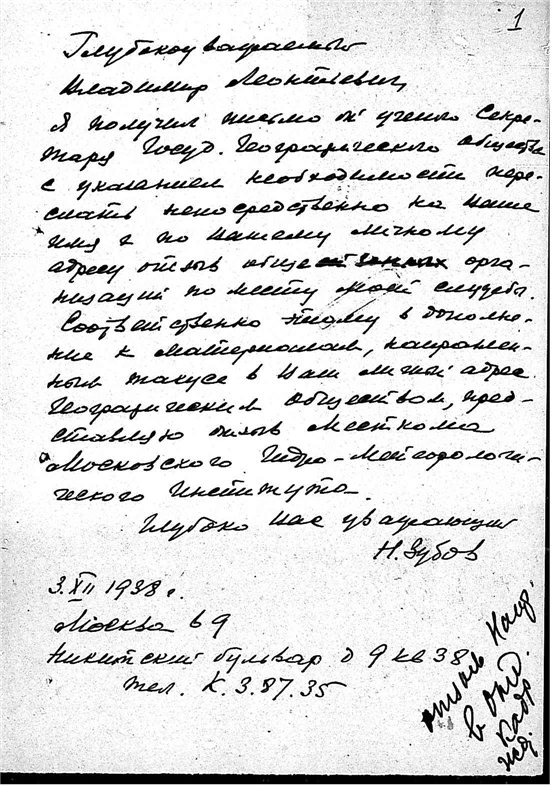 1
Глубокоуважаемый
Владимир Леонтьевич
Я получил письмо от ученого Секре-
таря Госуд. Географического общества
с указанием необходимости пере-
слать непосредственно на Ваше
имя и по Вашему личному
адресу отзыв общественных орга-
низаций по месту моей службы.
Соответственно этому в дополне-
ние к материалам, направлен-
ным также в Ваш личный адрес
Географическим обществом, пред-
ставляю отзыв Месткома
Московского Гидро-Метеорологи-
ческого Института.
Глубоко Вас уважающий
Н. Зубов
3.XII 1938 г.
Москва 69
Никитский бульвар д 9 кв 38
тел. К. 3.87.35
отзыв
в отд.
кадр